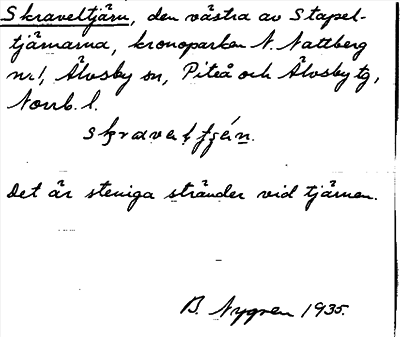 Skraveltjärn, den västra av Stapel-
tjärnarna, kronoparken N. Nattberg
nr 1, Älvsby sn, Piteå och Älvsby tg,
Norrb. l.
skraveltjän.
Det är steniga stränder vid tjärnen.
B. Nygren 1935.